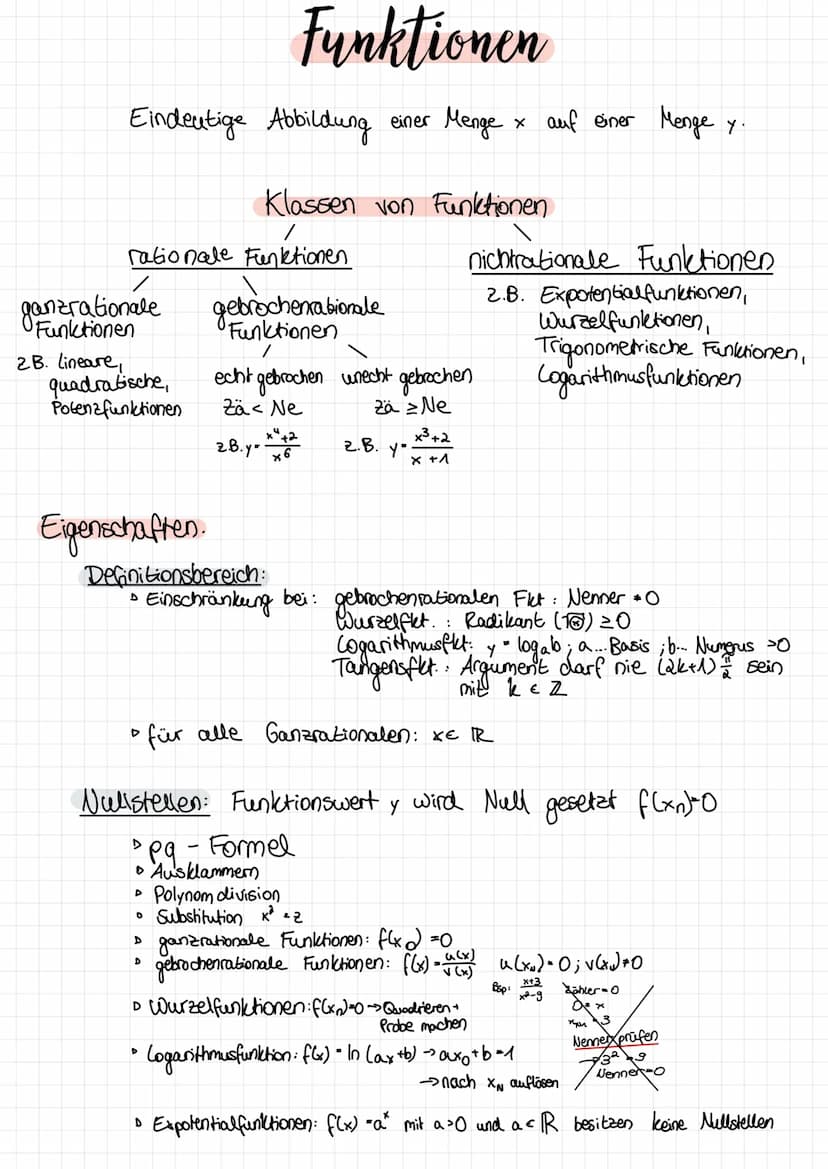 Funktionen
Eindeutige Abbildung einer Menge x auf einer Menge y.
Klassen von Funktionen
rationale Funktionen
nichtrationale Funktionen
ganzrationale Funktionen
z.B. lineare,
quadratische,
Potenzfunktionen
gebrochenrationale Funktionen
echt gebrochen
Zä < Ne
z.B. y = (x⁴+2)/x⁶
unecht gebrochen
Zä ≥ Ne
z.B. y = (x³+2)/(x+1)
z.B. Expotentialfunktionen,
Wurzelfunktionen,
Trigonometrische Funktionen,
Logarithmusfunktionen
Eigenschaften.
Definitionsbereich:
▹ Einschränkung bei: gebrochenrationalen Fkt : Nenner ≠ 0
Wurzelfkt. : Radikant ≥ 0
Logarithmusfkt: y = logab ; a... Basis ; b... Numerus > 0
Tangensfkt. : Argument darf nie (2k+1) π/2 sein
mit k ∈ Z
▹ für alle Ganzrationalen: x ∈ ℝ
Nullstellen: Funktionswert y wird Null gesetzt f(xₙ)=0
▹ pq - Formel
▹ Ausklammern
▹ Polynomdivision
▹ Substitution x² = z
▹ ganzrationale Funktionen: f(x₀) = 0
▹ gebrochenrationale Funktionen: f(x) = u(x)/v(x) u(xₙ) = 0 ; v(xₙ) ≠ 0
Bsp: (x+3)/(x²-9)
Zähler = 0
Nenner prüfen
Nenner = 0
▹ Wurzelfunktionen: f(xₙ)=0 → Quadrieren +
Probe machen
▹ Logarithmusfunktion: f(x) = ln (ax+b) → ax₀+b = 1
→ nach xₙ auflösen
▹ Expotentialfunktionen: f(x) = aˣ mit a>0 und a ∈ ℝ besitzen keine Nullstellen